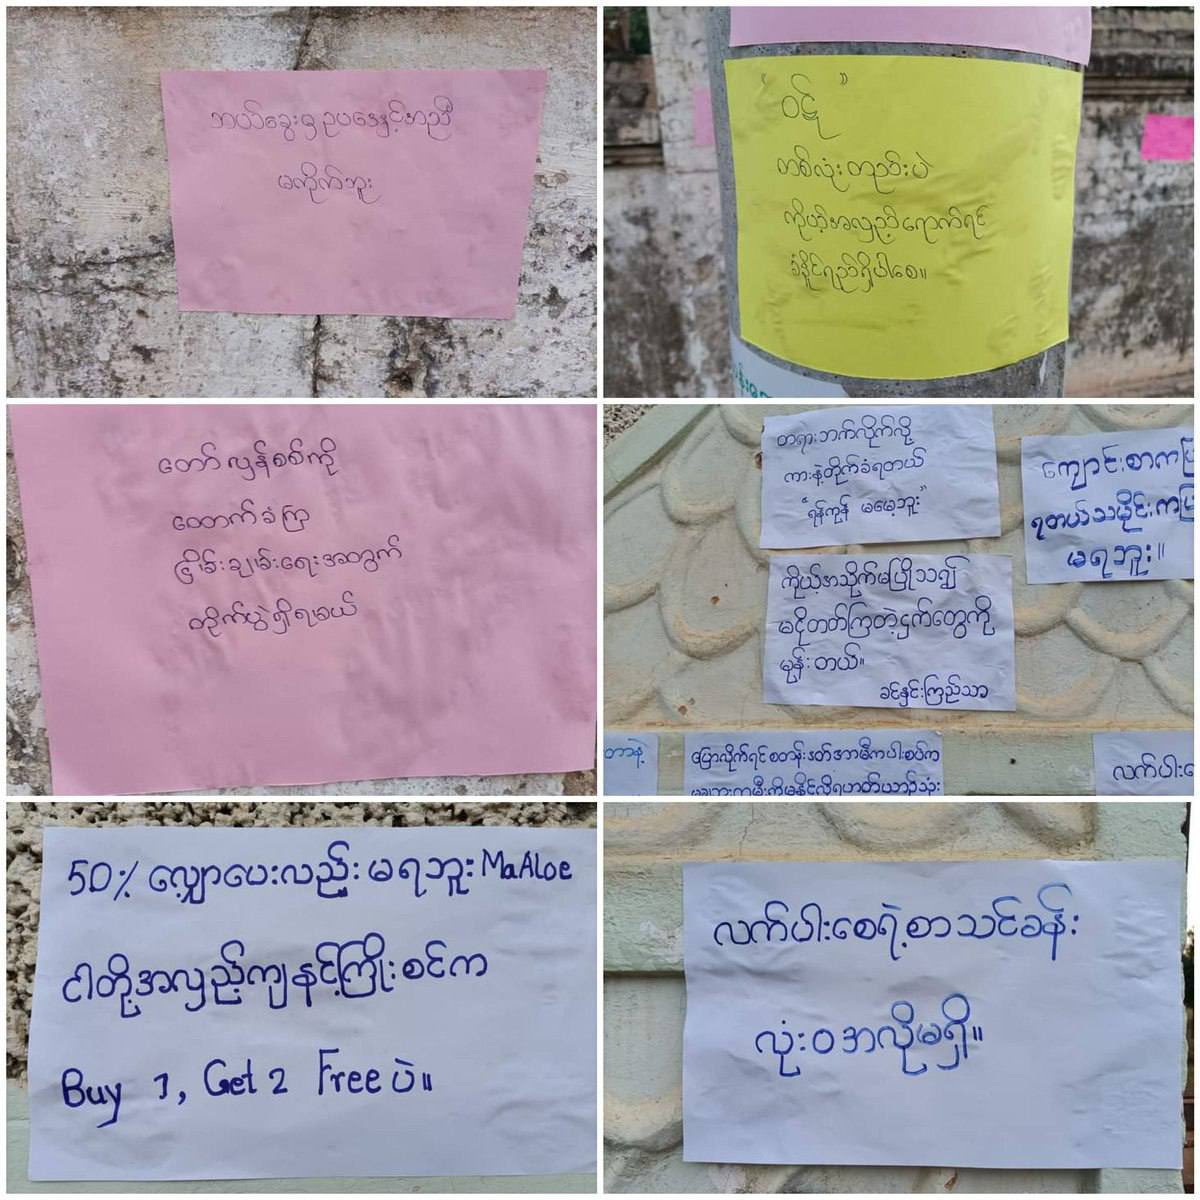 ဘယ်ခွေးမှ ဥပဒေနှင့်အညီ
မကိုက်ဘူး
" ဝဋ် "
တစ်လုံး တည်းပဲ
ကိုယ့်အလှည့်ရောက်ရင်
ခံနိုင်ရည်ရှိပါစေ။
တော်လှန်စစ်ကို
ထောက်ခံကြ
ငြိမ်းချမ်းရေးအတွက်
တိုက်ပွဲရှိရမယ်
တရားဘက်လိုက်လို့
ကားနဲ့တိုက်ခံရတယ်
"ရန်ကုန် မမေ့ဘူး"
ကျောင်းစာက
ရတယ်သမိုင်းက
မရဘူး။
ကိုယ့်အသိုက်မပြိုသ၍
မငိုတတ်ကြတဲ့ငှက်တွေကို
မုန်းတယ်။
ခင်နှင်းကြည်သာ
တာနဲ့
ပြောလိုက်ရင်စတန်းဒတ်အာမီကပါးစပ်က
လက်ပါး
50% လျှော့ပေးလည်း မရဘူး MaAloe
ငါတို့အလှည့်ကျနင့်ကြိုးစင်က
Buy 1, Get 2 Free ပဲ။
လက်ပါးစေရဲ့စာသင်ခန်း
လုံးဝအလိုမရှိ။